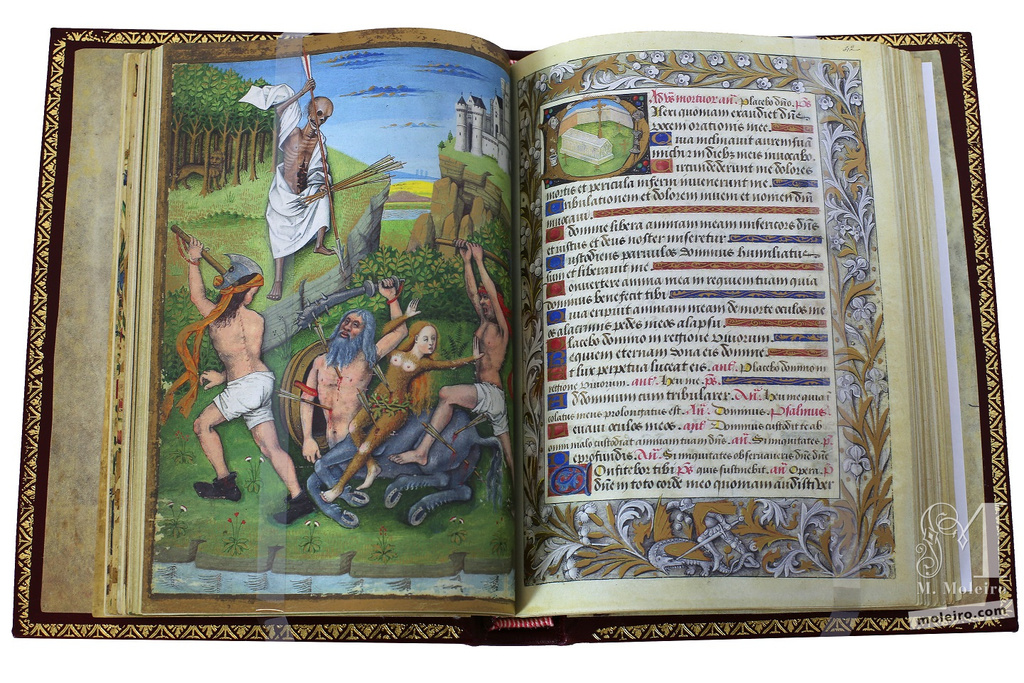 Ad vs mortuor. añ. Placebo dño. ps
ilexi quoniam exaudiet dñs
vocem orationis mee.
uia inclinauit aurem suā
michi: in dieb; meis inuocabo.
ircundederunt me dolores
mortis et pericula inferni inuenerunt me.
ribulationem et dolorem inueni et nomen dñi
inuocaui.
domine libera animam meam misericors dñs
et iustus et deus noster miseretur.
ustodiens paruulos dominus humiliatus
sum et liberauit me.
onuertere anima mea in requiem tuam quia
dominus benefecit tibi
uia eripuit animam meam de morte oculos me
os a lacrimis pedes meos a lapsu.
lacebo domino in regione viuorum.
equiem eternam dona eis domine.
t lux perpetua luceat eis. añt. Placebo domino in
regione viuorum. añt. Heu me. ps.
d dominum cum tribularer. Añ. Heu me quia i
colatus meus prolongatus est. Añ. Dominus. Psalmus
euaui oculos meos. añt. Dominus custodit te ab
omni malo custodiat animam tuam dñs. añ. Si iniquitates. p.
e profundis. Añ. Si iniquitates obseruaueris dñe dñe
Confitebor tibi Ps quis sustinebit. añ. Opera. p
dñe in toto corde meo quoniam audisti ver
M. Moleiro
moleiro.com